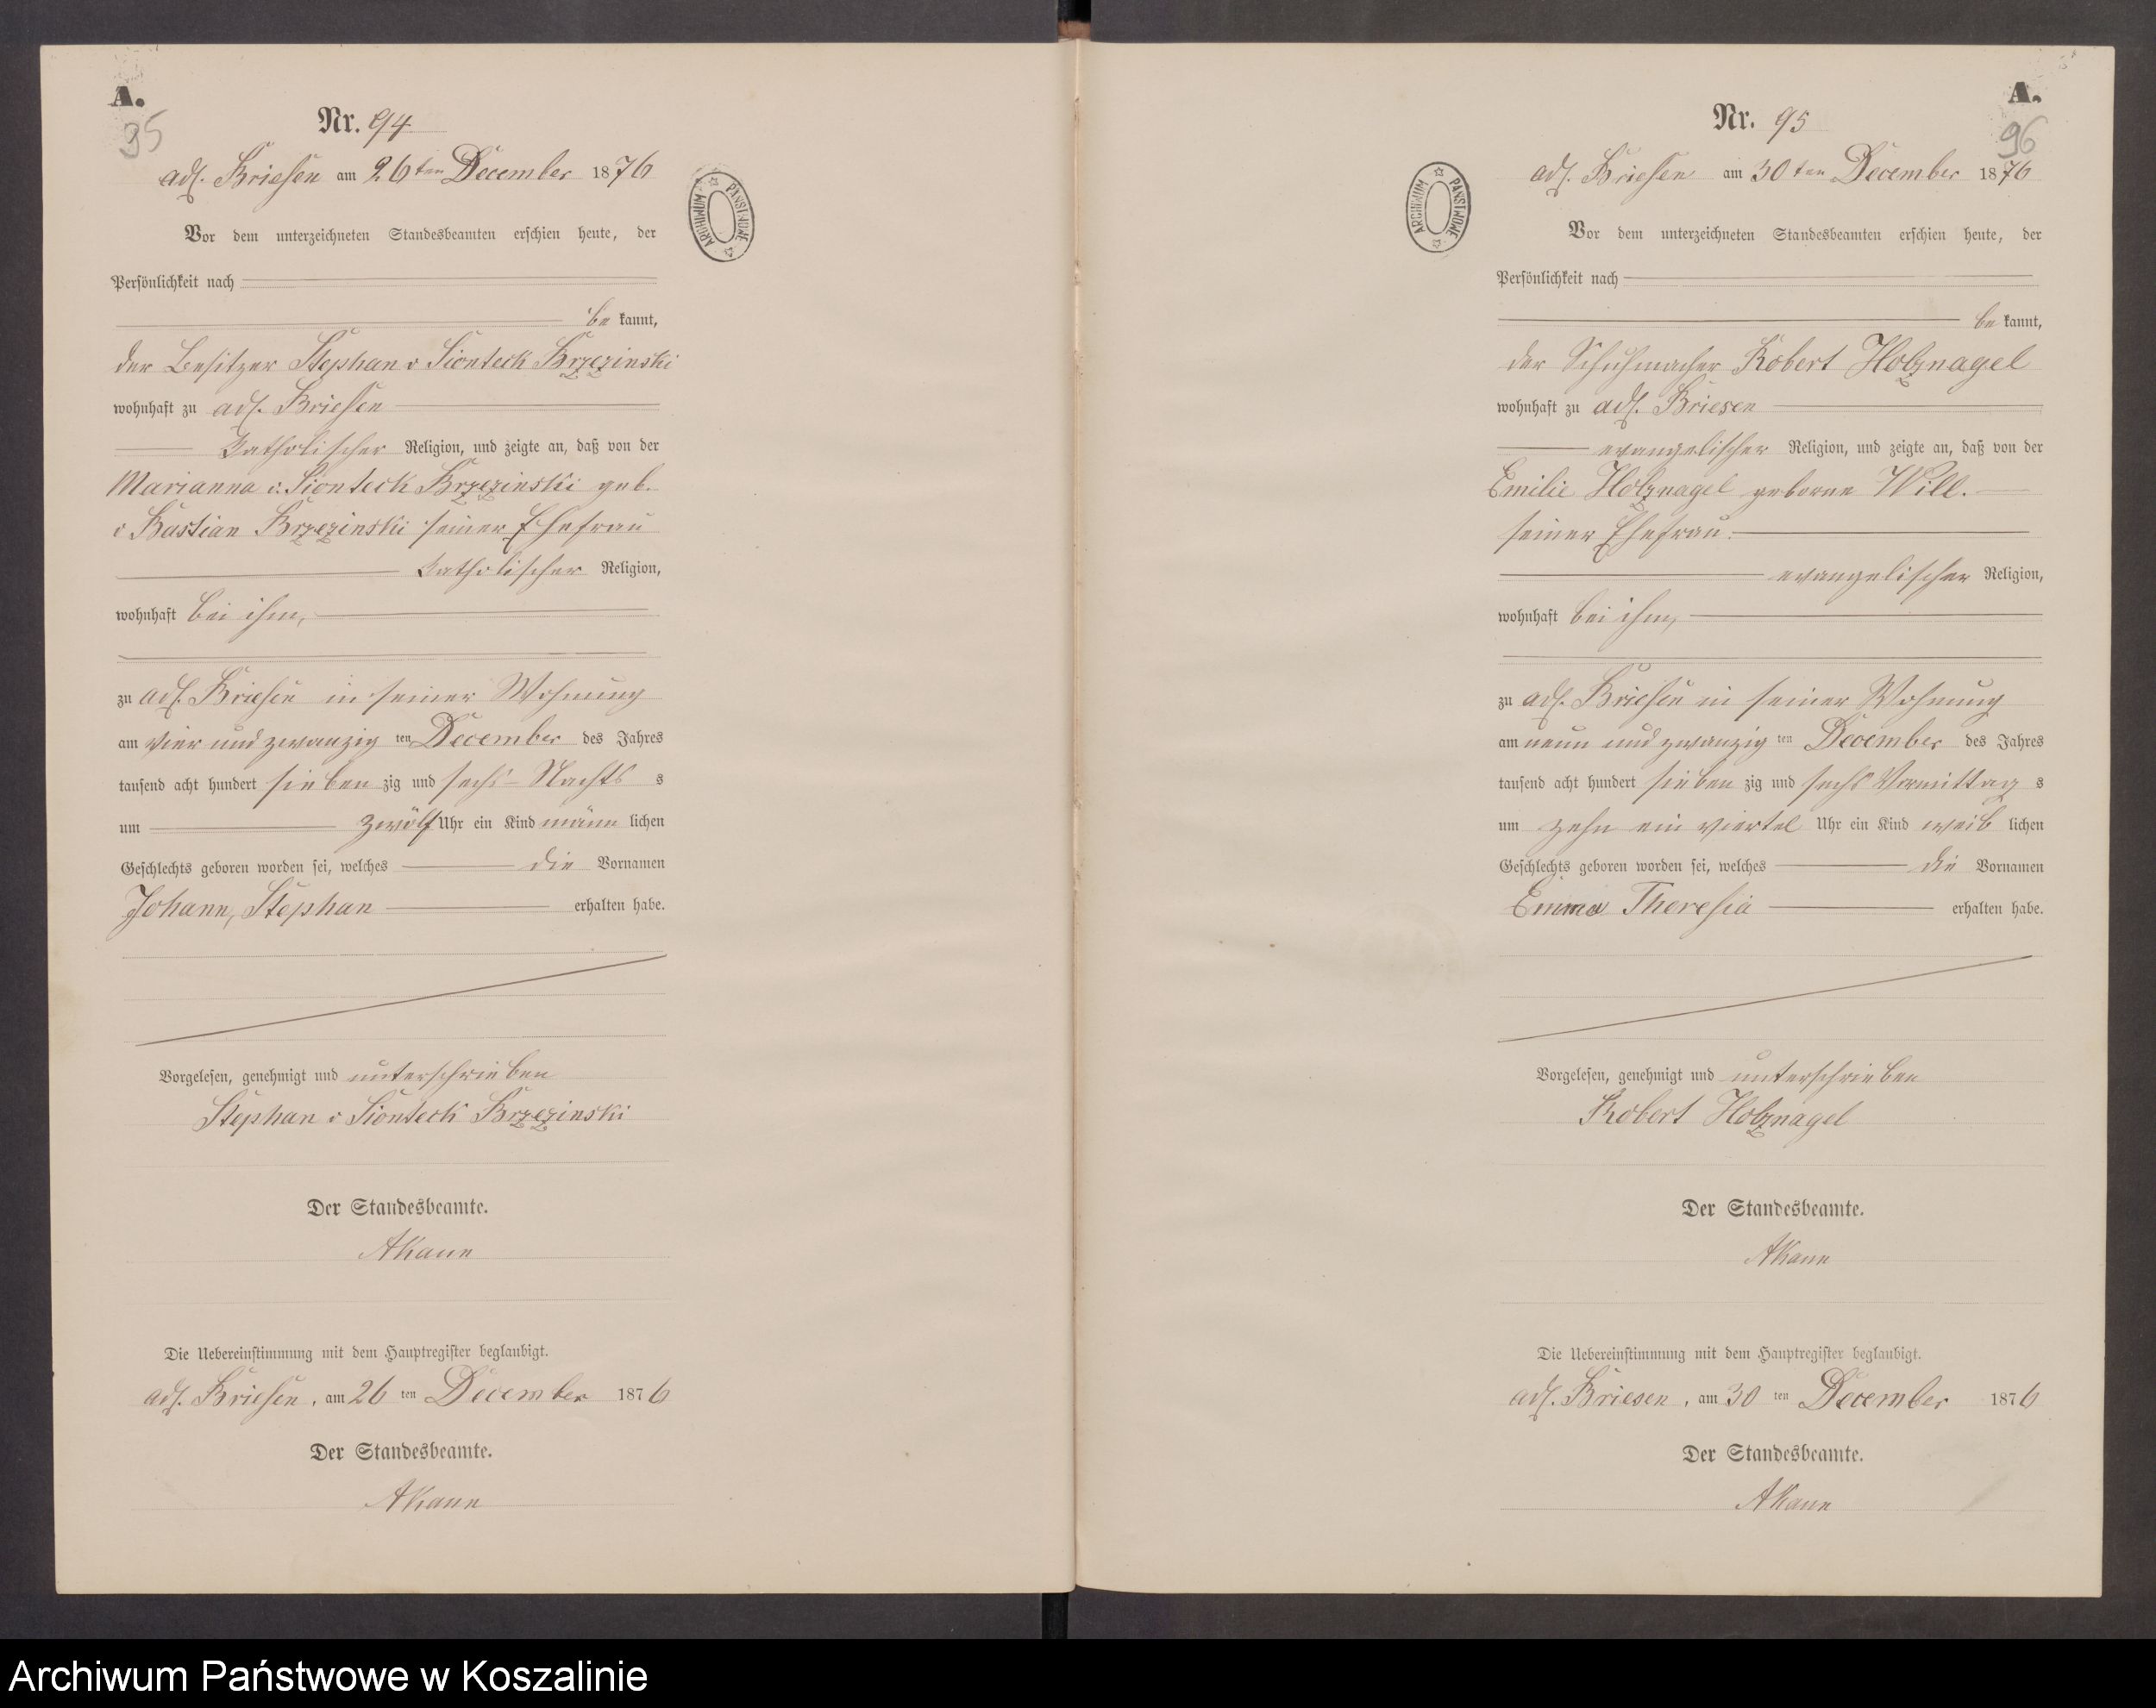 A.
95
Nr. 94
adl. Briesen am 26ten December 1876
Vor dem unterzeichneten Standesbeamten erschien heute, der
Persönlichkeit nach
be kannt,
der Besitzer Stephan v Sionteck Brzezinski
wohnhaft zu adl. Briesen
katholischer Religion, und zeigte an, daß von der
Marianna v. Sionteck Brzezinski geb.
v Bastian Brzezinski seiner Ehefrau
katholischer Religion,
wohnhaft bei ihm,
zu adl. Briesen in seiner Wohnung
am vier und zwanzig ten December des Jahres
tausend acht hundert sieben zig und sechs Nachts s
um zwölf Uhr ein Kind männ lichen
Geschlechts geboren worden sei, welches die Vornamen
Johann, Stephan erhalten habe.
Vorgelesen, genehmigt und unterschrieben
Stephan v Sionteck Brzezinski
Der Standesbeamte.
AKann
Die Uebereinstimmung mit dem Hauptregister beglaubigt.
adl. Briesen, am 26 ten December 1876
Der Standesbeamte.
AKann
ARCHIWUM PAŃSTWOWE
A.
96
Nr. 95
adl. Briesen am 30ten December 1876
ARCHIWUM PAŃSTWOWE
Vor dem unterzeichneten Standesbeamten erschien heute, der
Persönlichkeit nach
be kannt,
der Schuhmacher Robert Holznagel
wohnhaft zu adl. Briesen
evangelischer Religion, und zeigte an, daß von der
Emilie Holznagel geborne Will.
seiner Ehefrau.
evangelischer Religion,
wohnhaft bei ihm,
zu adl. Briesen in seiner Wohnung
am neun und zwanzig ten December des Jahres
tausend acht hundert sieben zig und sechs Vormittag s
um zehn ein viertel Uhr ein Kind weib lichen
Geschlechts geboren worden sei, welches die Vornamen
Emma Theresia erhalten habe.
Vorgelesen, genehmigt und unterschrieben
Robert Holznagel
Der Standesbeamte.
AKann
Die Uebereinstimmung mit dem Hauptregister beglaubigt.
adl. Briesen, am 30 ten December 1876
Der Standesbeamte.
AKann
Archiwum Państwowe w Koszalinie